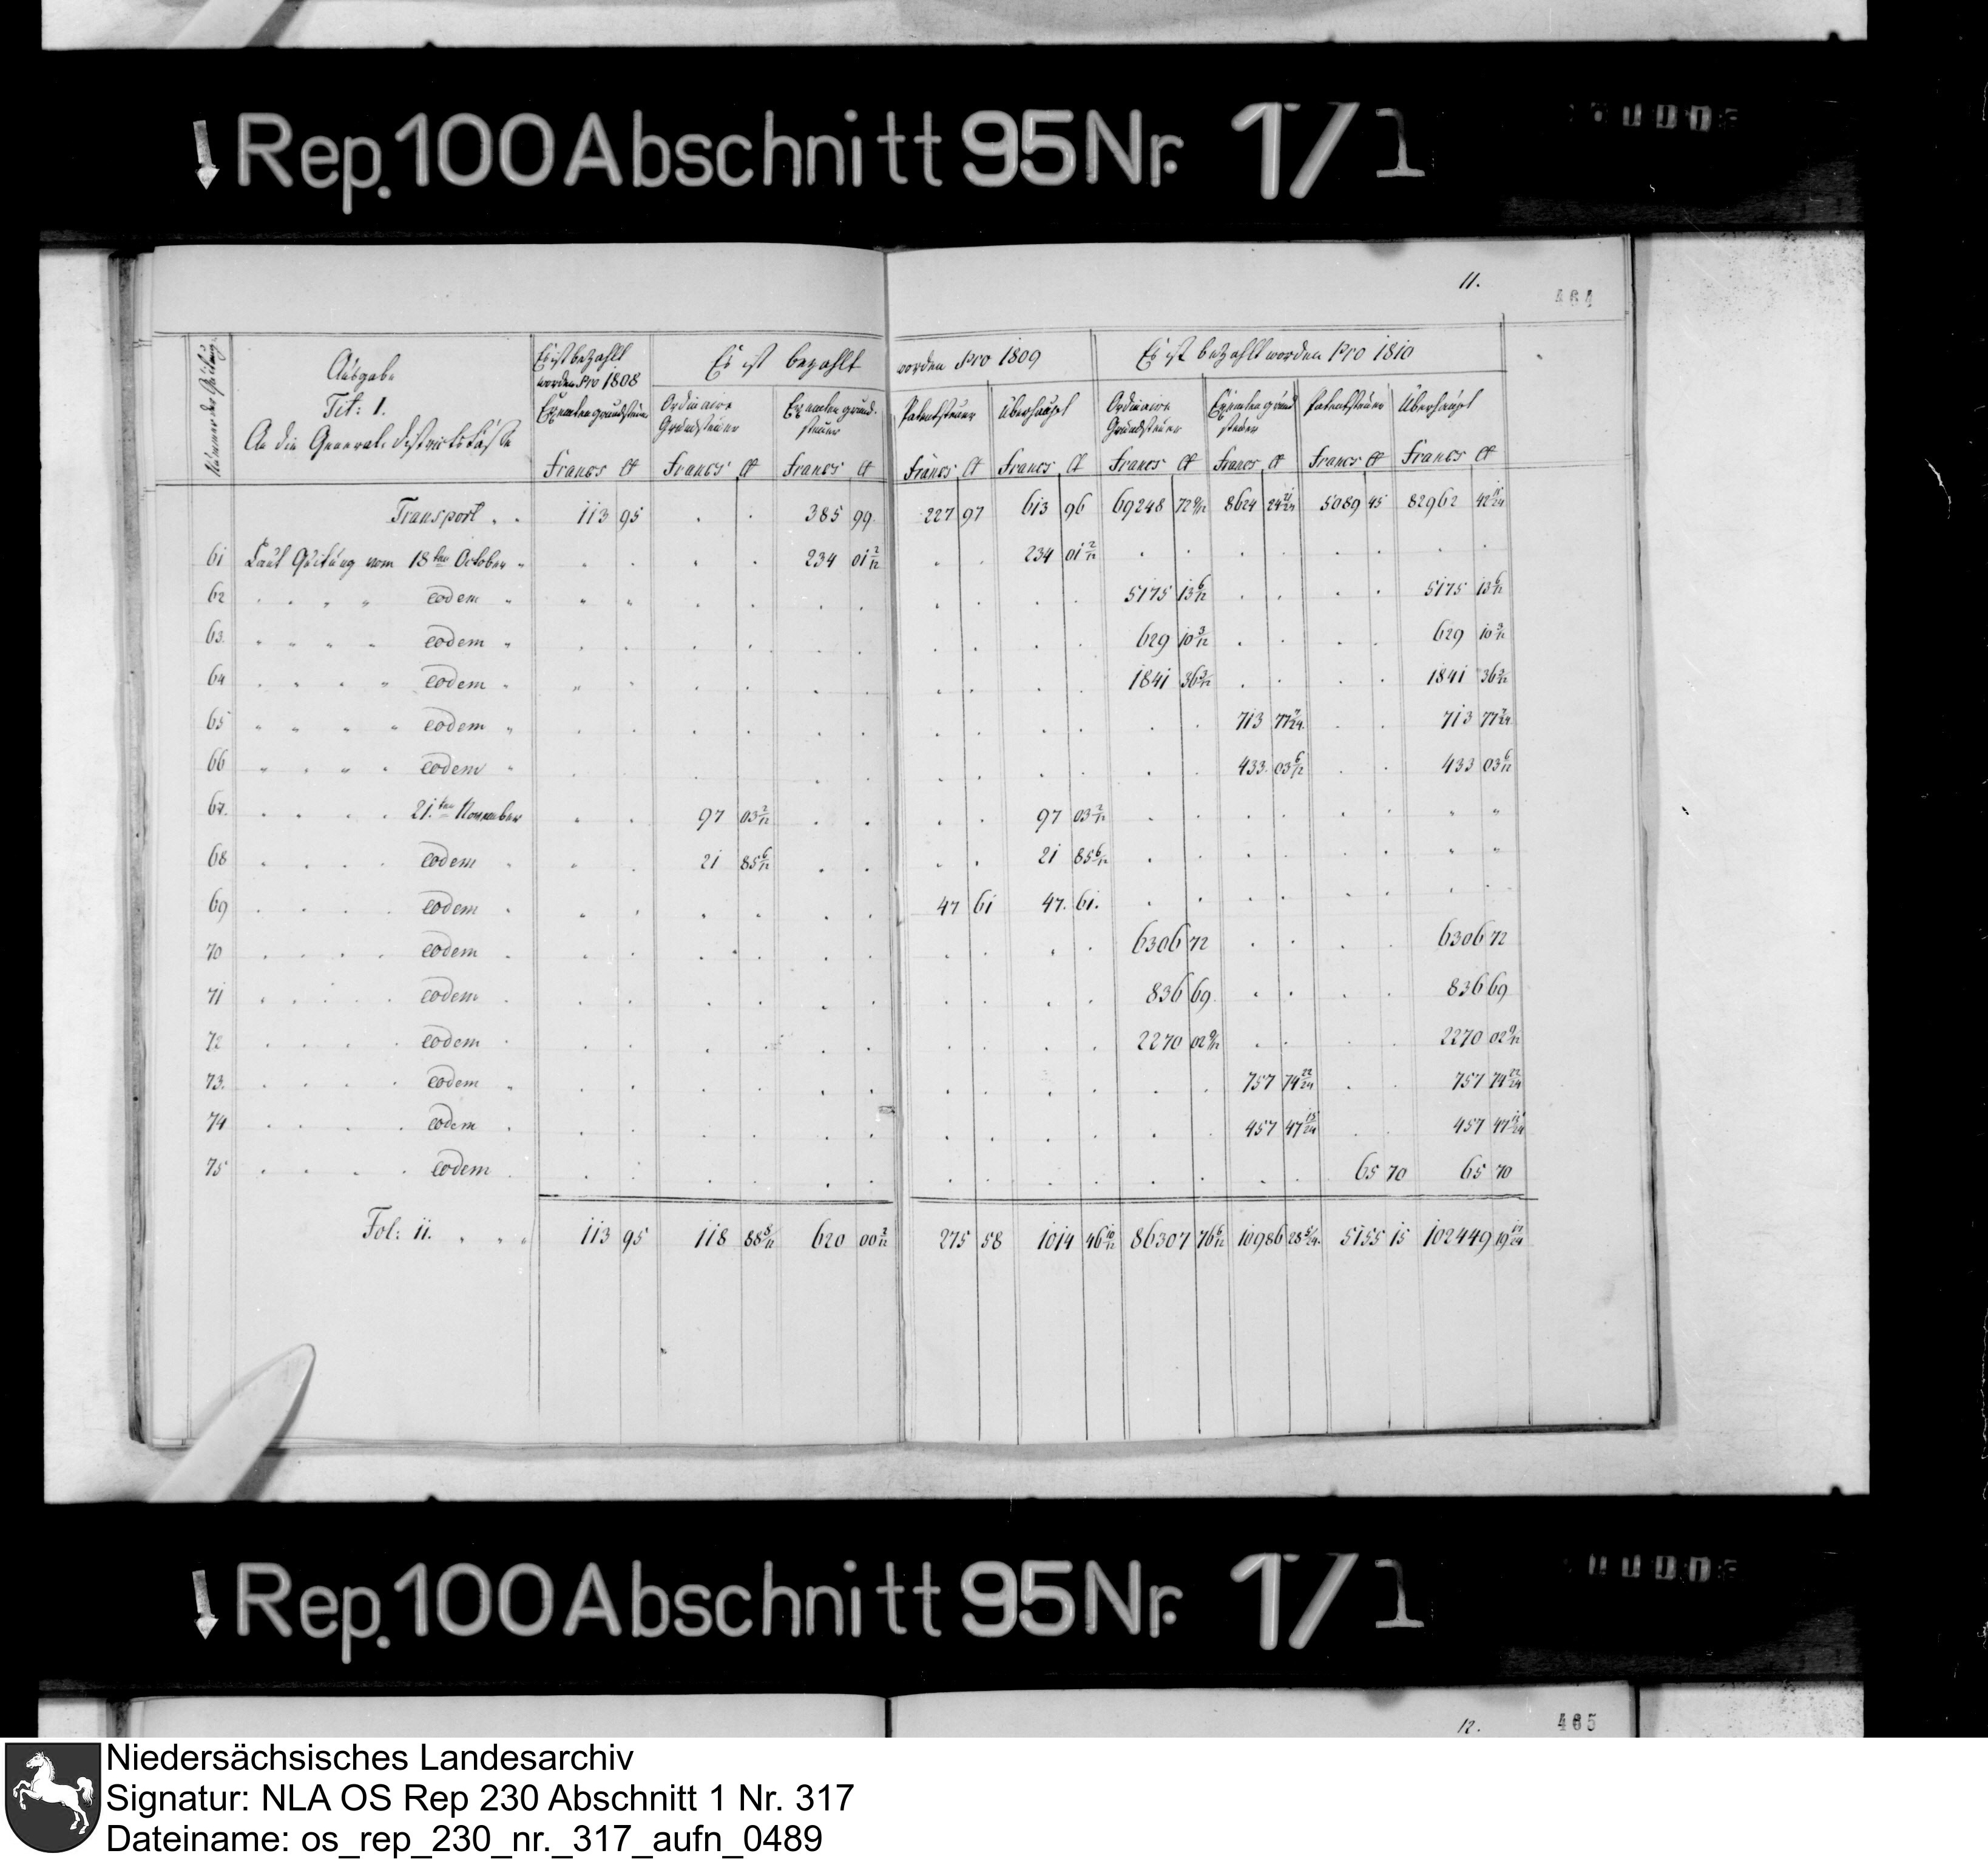 Rep. 100 Abschnitt 95 Nr. 1/1
11.
464
Nummer der Quitung
Ausgabe
Tit: 1.
An die General-Districtskasse
Es ist bezahlt worden pro 1808
Es ist bezahlt worden pro 1809
Es ist bezahlt worden pro 1810
Exemtengrundsteuer
Ordinaire Grundsteuer
Exemtengrundsteuer
Patentsteuer
Überhaupt
Ordinaire Grundsteuer
Exemtengrundsteuer
Patentsteuer
Überhaupt
Francs Ct Francs Ct Francs Ct Francs Ct Francs Ct Francs Ct Francs Ct Francs Ct Francs Ct
Transport . . 113 95 . . 385 99 227 97 613 96 69248 72 9/12 8624 24 21/24 5089 45 82962 42 15/24
61 Laut Quitung vom 18ten October 234 01 2/12 234 01 2/12
62 eodem 5175 13 6/12 5175 13 6/12
63. eodem 629 10 3/12 629 10 3/12
64 eodem 1841 36 3/12 1841 36 3/12
65 eodem 713 77 7/24 713 77 7/24
66 eodem 433 03 6/12 433 03 6/12
67. 21.ten November 97 03 2/12 97 03 2/12
68 eodem 21 85 6/12 21 85 6/12
69 eodem 47 61 47. 61.
70 eodem 6306 72 6306 72
71 eodem 836 69 836 69
72 eodem 2270 02 9/12 2270 02 9/12
73. eodem 757 74 22/24 757 74 22/24
74 eodem 457 47 15/24 457 47 15/24
75 eodem 65 70 65 70
Fol: 11. 113 95 118 88 8/12 620 00 2/12 275 58 1014 46 10/12 86307 76 6/12 10986 28 5/24 5155 15 102449 19 17/24
Rep. 100 Abschnitt 95 Nr. 1/1
12.
465
Niedersächsisches Landesarchiv
Signatur: NLA OS Rep 230 Abschnitt 1 Nr. 317
Dateiname: os_rep_230_nr._317_aufn_0489